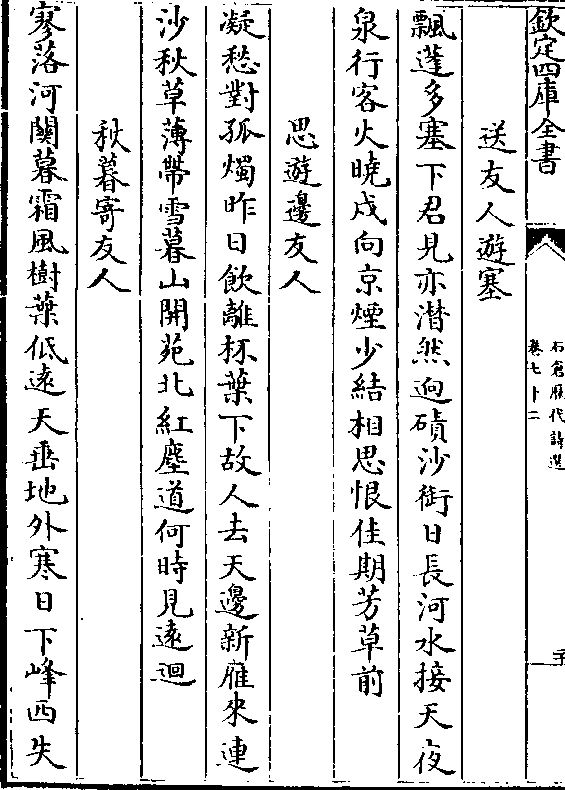 欽定四庫全書
石倉歷代詩選
卷七十二
送友人遊塞
飄蓬多塞下君見亦潸然逈磧沙銜日長河水接天夜
泉行客火曉戍向京煙少結相思恨佳期芳草前
思遊邊友人
凝愁對孤燭昨日飲離杯葉下故人去天邊新雁來連
沙秋草薄帶雪暮山開苑北紅塵道何時見遠迴
秋暮寄友人
寥落河關暮霜風樹葉低遠天垂地外寒日下峰西失